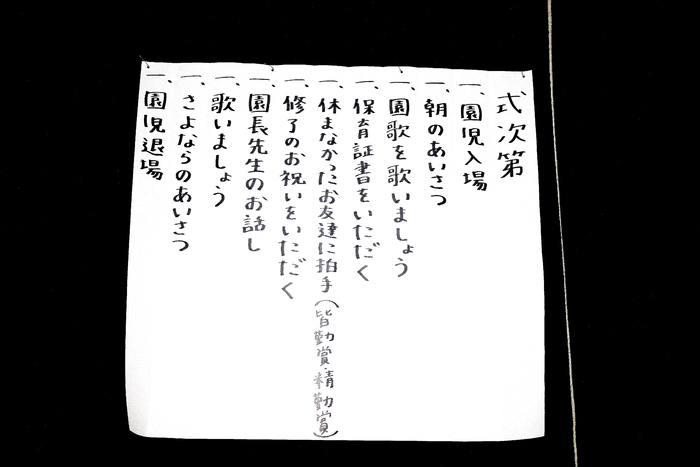 式次第
一、園児入場
一、朝のあいさつ
一、園歌を歌いましょう
一、保育証書をいただく
一、休まなかったお友達に拍手(皆勤賞・精勤賞)
一、修了のお祝いをいただく
一、園長先生のお話し
一、歌いましょう
一、さよならのあいさつ
一、園児退場